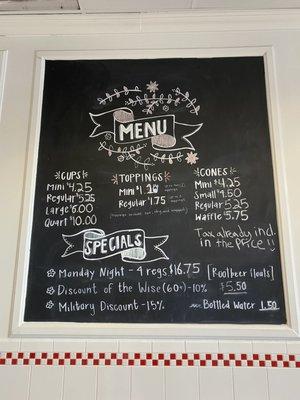 MENU
CUPS
Mini $4.25
Regular $5.25
Large $6.00
Quart $10.00
TOPPINGS
Mini $1.
Regular 1.75
CONES
Mini $4.25
Small $4.50
Regular 5.25
Waffle 5.75
Tax already incl.
in the price!!
SPECIALS
Monday Night - 4 regs $16.75 [Rootbeer floats]
Discount of the Wise (60+) - 10% $5.50
Military Discount - 15% Bottled Water 1.50